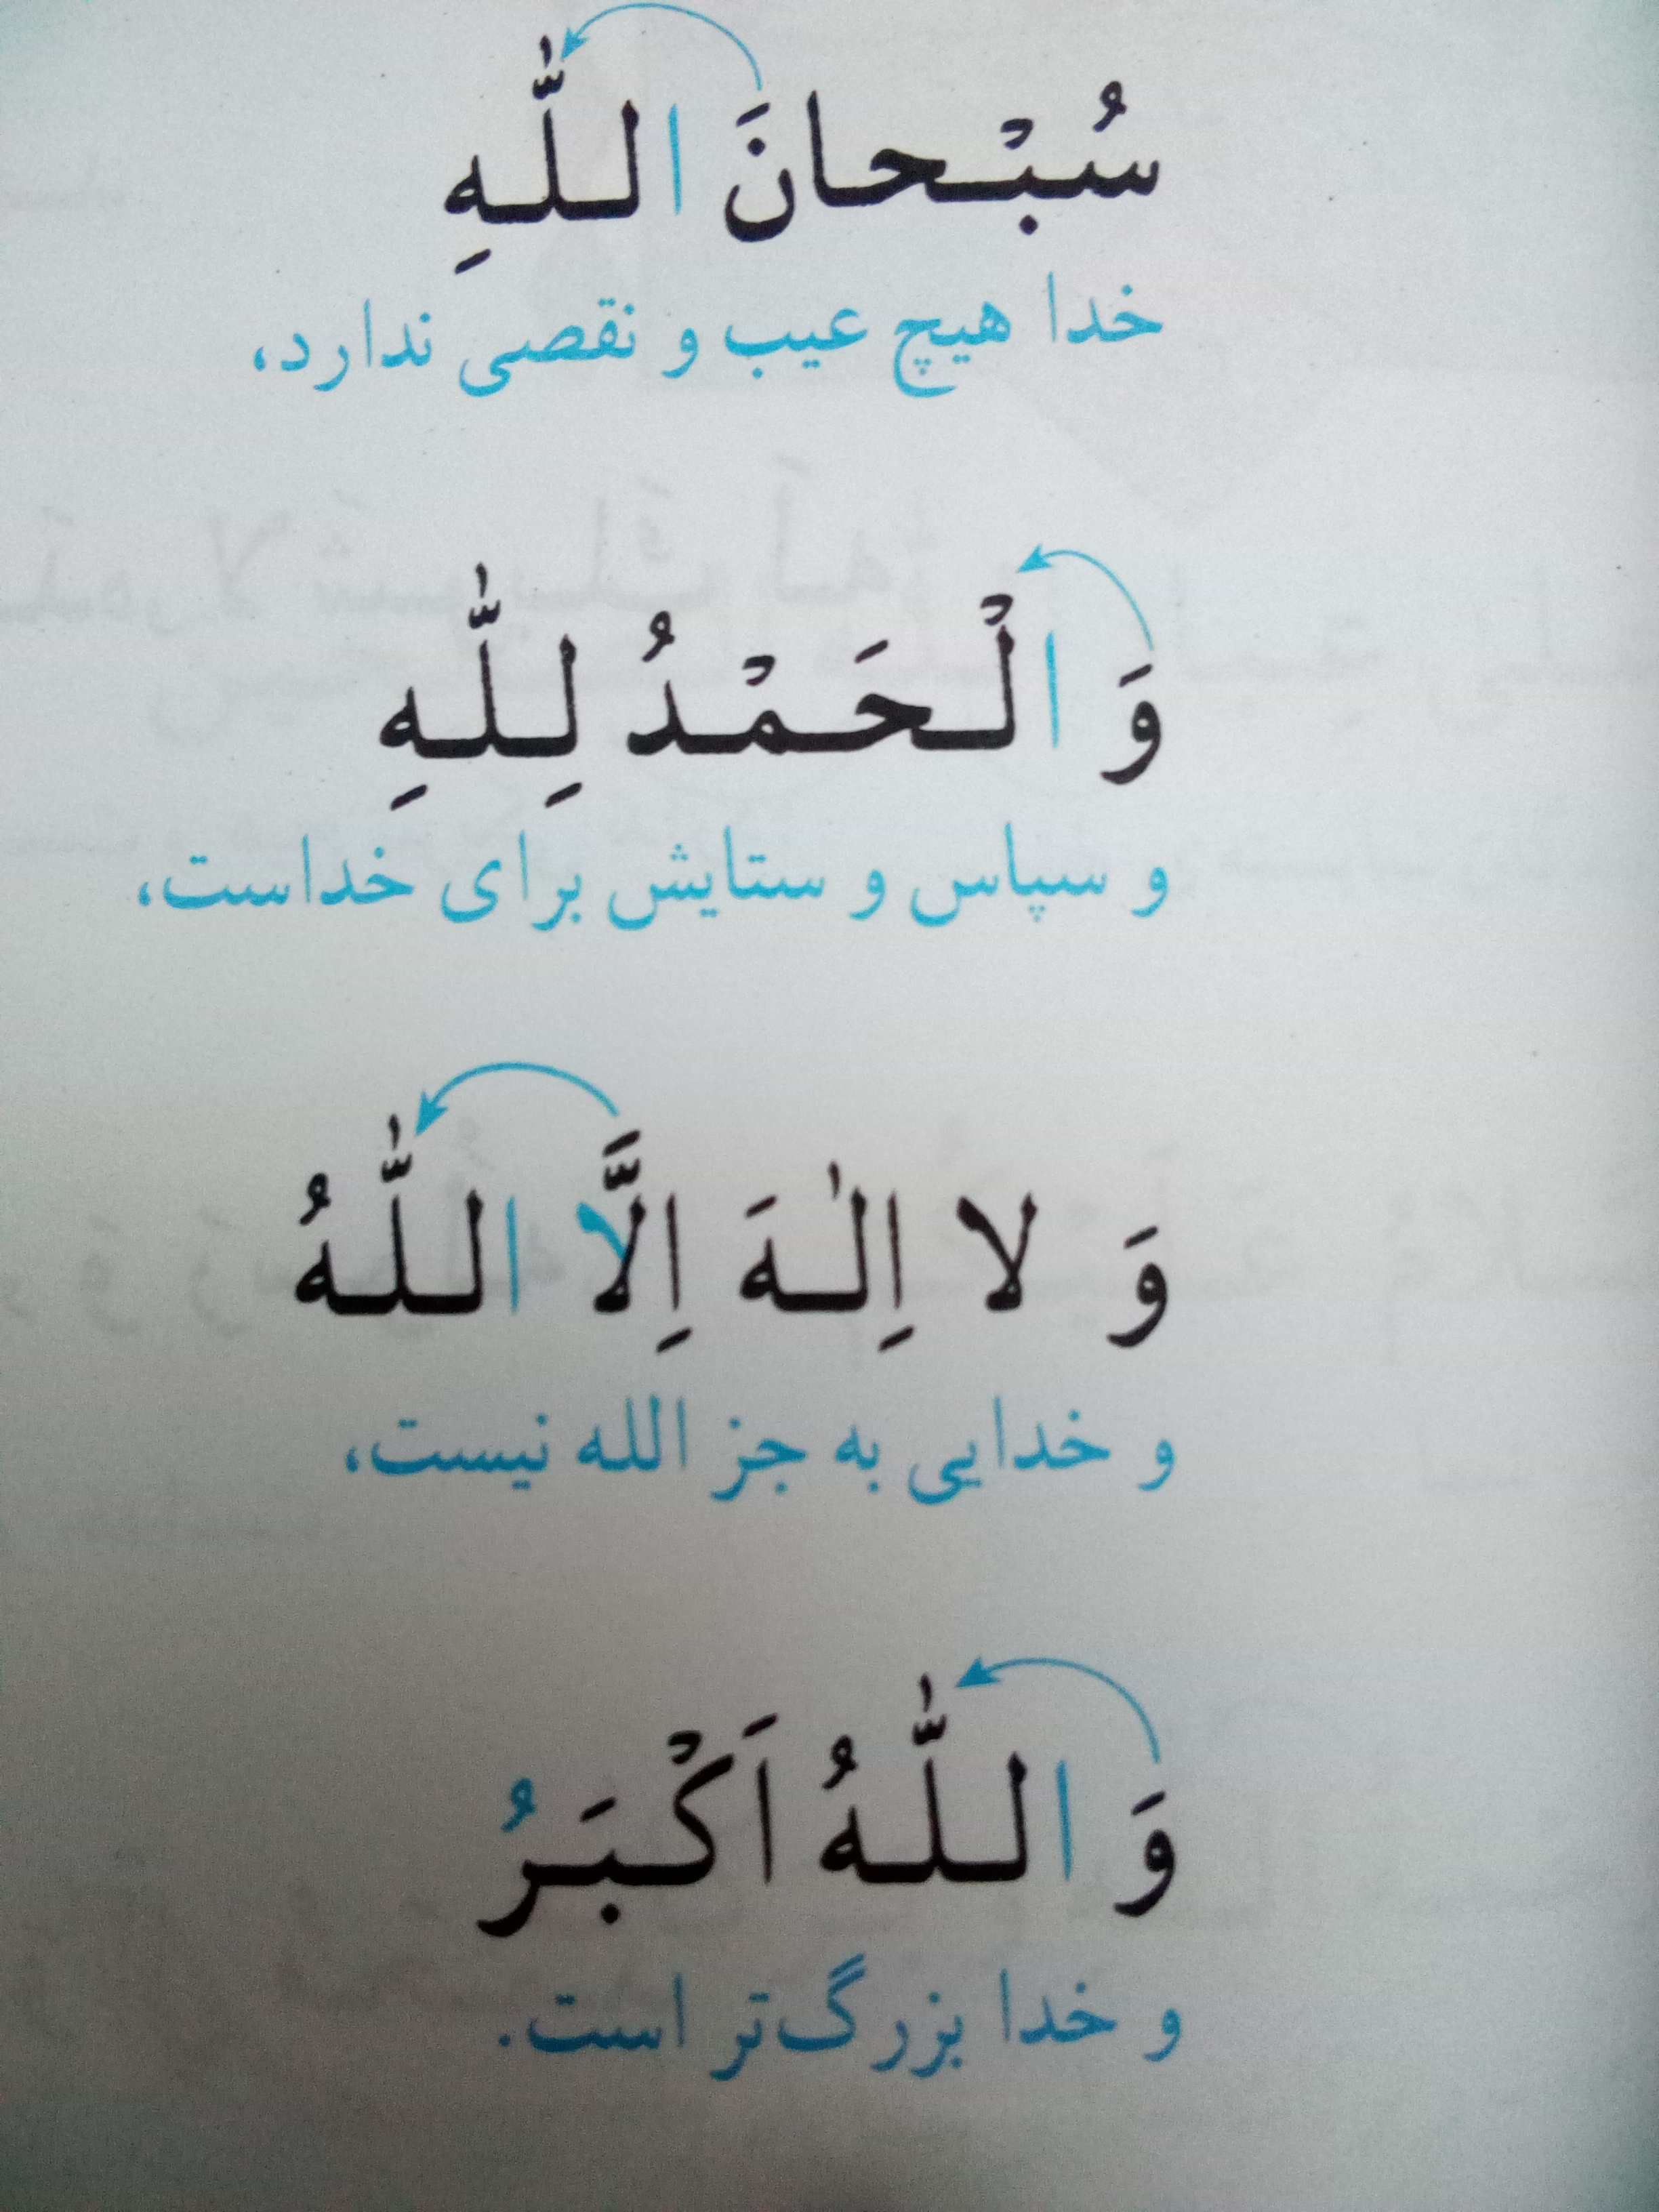 سُبْحانَ اللّٰهِ
خدا هیچ عیب و نقصی ندارد،
وَ الْحَمْدُ لِلّٰهِ
و سپاس و ستایش برای خداست،
وَ لا اِلٰهَ اِلَّا اللّٰهُ
و خدایی به جز الله نیست،
وَ اللّٰهُ اَكْبَرُ
و خدا بزرگ‌تر است.